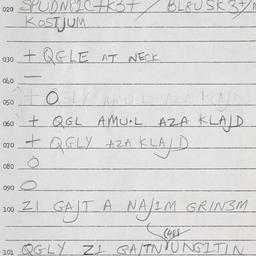 020 SPUDNPICTK3T / BL8USK3T/
KOSTJUM
030 + QGLE AT NECK
040 —
050 + O
060 + QGL AMU·L AZA KLAJD
070 + QGLY AZA KLAJD
080 O
090 O
100 ZI GAJT A NAJIM GRIN3M
101 QGLY ZI GAJTN UNGITIN